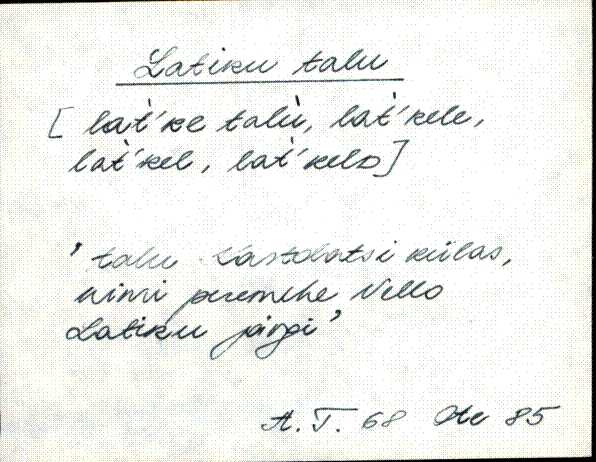 Latiku talu
[ lat̀'ke talù, lat̀'kele,
lat̀'kel, lat̀'kelɒ]
' talu Kastolatsi külas,
nimi peremehe Vello
Latiku järgi'
A. T. 68 Ote 85